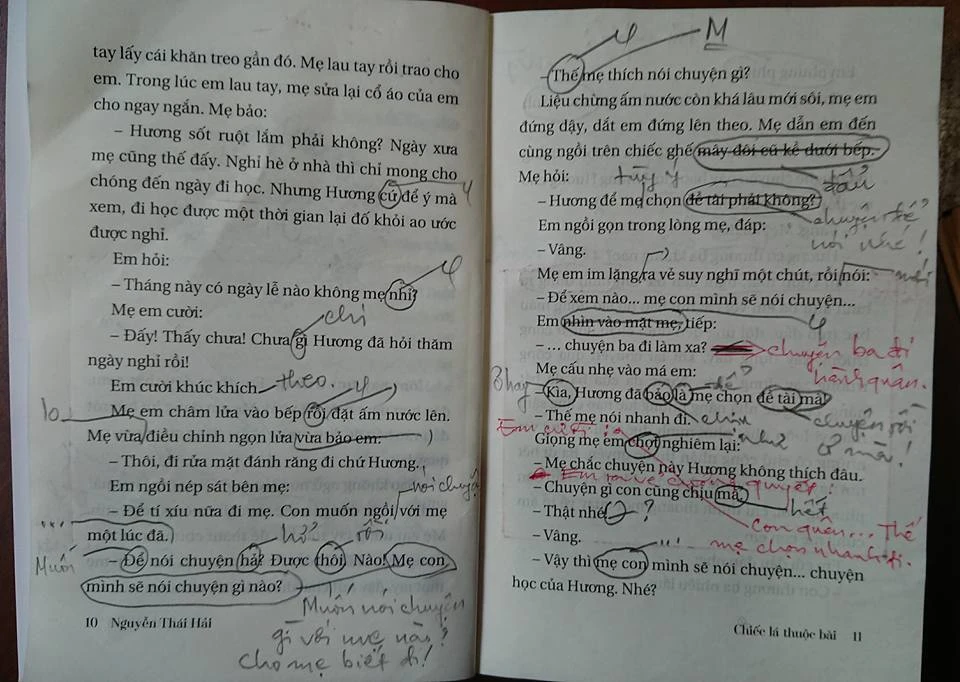 tay lấy cái khăn treo gần đó. Mẹ lau tay rồi trao cho
em. Trong lúc em lau tay, mẹ sửa lại cổ áo của em
cho ngay ngắn. Mẹ bảo:
– Hương sốt ruột lắm phải không? Ngày xưa
mẹ cũng thế đấy. Nghỉ hè ở nhà thì chỉ mong cho
chóng đến ngày đi học. Nhưng Hương cứ để ý mà
xem, đi học được một thời gian lại đố khỏi ao ước
được nghỉ.
Em hỏi:
– Tháng này có ngày lễ nào không mẹ nhỉ?
Mẹ em cười:
chi
– Đấy! Thấy chưa! Chưa gì Hương đã hỏi thăm
ngày nghỉ rồi!
Em cười khúc khích theo.
Mẹ em châm lửa vào bếp rồi đặt ấm nước lên.
Mẹ vừa điều chỉnh ngọn lửa vừa bảo em:
– Thôi, đi rửa mặt đánh răng đi chứ Hương.
Em ngồi nép sát bên mẹ:
nói chuyện
– Để tí xíu nữa đi mẹ. Con muốn ngồi với mẹ
một lúc đã.
hở rồi
Muốn
– Để nói chuyện hả? Được thôi. Nào. Mẹ con
mình sẽ nói chuyện gì nào?
Muốn nói chuyện
gì với mẹ nào?
cho mẹ biết đi!
10 Nguyễn Thái Hải
M
– Thế mẹ thích nói chuyện gì?
Liệu chừng ấm nước còn khá lâu mới sôi, mẹ em
đứng dậy, dắt em đứng lên theo. Mẹ dẫn em đến
cùng ngồi trên chiếc ghế mây đôi cũ kề dưới bếp.
Mẹ hỏi:
tùy ý
đẩu
– Hương để mẹ chọn đề tài phải không?
chuyện để
nói nhé!
Em ngồi gọn trong lòng mẹ, đáp:
– Vâng.
Mẹ em im lặng ra vẻ suy nghĩ một chút, rồi nói:
– Để xem nào... mẹ con mình sẽ nói chuyện...
Em nhìn vào mặt mẹ, tiếp:
– ... chuyện ba đi làm xa?
chuyện ba đi
hành quân.
Mẹ cấu nhẹ vào má em:
để
– Kìa, Hương đã bảo là mẹ chọn đề tài mà.
chuyện rồi
cơ mà!
– Thế mẹ nói nhanh đi.
Giọng mẹ em chợt nghiêm lại:
– Mẹ chắc chuyện này Hương không thích đâu.
Em ra vẻ cương quyết:
– Chuyện gì con cũng chịu mà.
hết
– Thật nhé ?
Con quên... Thế
mẹ chọn nhanh đi.
– Vâng.
– Vậy thì mẹ con mình sẽ nói chuyện... chuyện
học của Hương. Nhé?
Chiếc lá thuộc bài 11